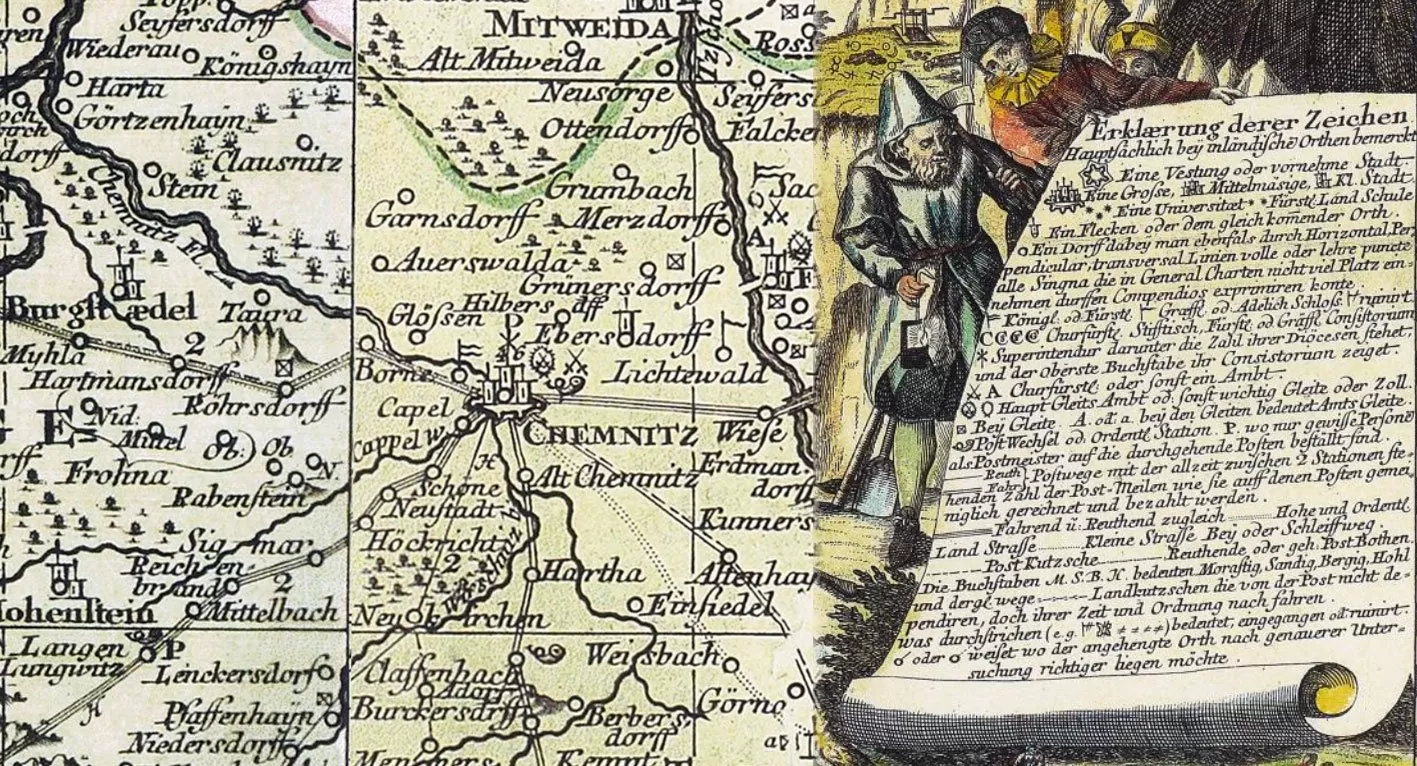 Seyfersdorff
Wiederau
Königshayn
Harta
Görtzenhayn
Clausnitz
Stein
Chemnitz Fl.
Burgst ædel
Taura
Myhla
2
Hartmansdorff
Röhrsdorff
Nid:
Mittel
Ob:
Ob.
N.
Frohna
Rabenstein
Sig mar
Reichen-
brand
2
Hohenstein
Mittelbach
Langen
Lungwitz
P
Lenckersdorf
Pfaffenhayn
Niedersdorff
MITWEIDA
Alt Mitweida
Ross
Neusorge
Seyfers
Ottendorff
Falcken
Grumbach
Sac
Garnsdorff
Merzdorff
A
Auerswalda
Grünersdorff
Glösen
Hilbers dff
Ebersdorff
Borna
Lichtewald
Capel
Cappel w.
CHEMNITZ
Wiese
H
Alt Chemnitz
Erdman.
dorff
Schöne
Neustadt
Höckricht
2
Kunners
Hartha
Altenhay
Neukirchen
Einsiedel
Claffenbach
Weisbach
Adorf
Burckersdrff
Berbers
dorff
Görno
Kemnt
Erklærung derer Zeichen
Hauptsächlich bey inländische Orthen bemerckt
Eine Vestung oder vornehme Stadt.
Eine Grosse, Mittelmäsige, Kl. Stadt.
Eine Universitæt * * Fürstl. Land Schule
Ein Flecken oder dem gleich komender Orth.
o Ein Dorff dabey man ebenfals durch Horizontal, Per
pendicular, transversal Linien volle oder lehre puncte
alle Singna die in General Charten nicht viel Platz ein=
nehmen durffen Compendios exprimiren konte.
Königl. od. Fürstl. Gräffl. od. Adelich Schloss ruinirt.
CCCC Churfürstl. Stifftisch, Fürstl. od Gräffl. Consistorium
* Superintendur darunter die Zahl ihrer Diöcesen stehet,
und der oberste Buchstabe ihr Consistorium zeiget.
A Churfürstl. oder sonst ein Ambt.
Haupt Gleits Ambt od: sonst wichtig Gleite oder Zoll.
Beÿ Gleite. A. od. a. bei den Gleiten bedeutet Amts Gleite.
Post Wechsel od. Ordentl. Station. P. wo nur gewisse Persone
als Postmeister auf die durchgehende Posten bestallt sind.
Reuth Fahr } Postwege mit der allzeit zwischen 2 Stationen ste-
henden Zahl der Post-Meilen wie sie auff denen Posten gemei
niglich gerechnet und bezahlt werden.
Fahrend ü. Reuthend zugleich Hohe und Ordentl.
Land Strasse Kleine Strasse Bey oder Schleiffweg.
Post Kutzsche Reuthende, oder geh. Post Bothen.
Die Buchstaben M. S. B. H. bedeuten Morastig, Sandig, Bergig, Hohl
und dergl. wege Landkutzschen die von der Post nicht de-
pendiren, doch ihrer Zeit und Ordnung nach fahren.
was durchstrichen (e.g. ) bedeutet, eingegangen od. ruinirt.
o oder o weiset wo der angehengte Orth nach genauerer Unter=
suchung richtiger liegen möchte.